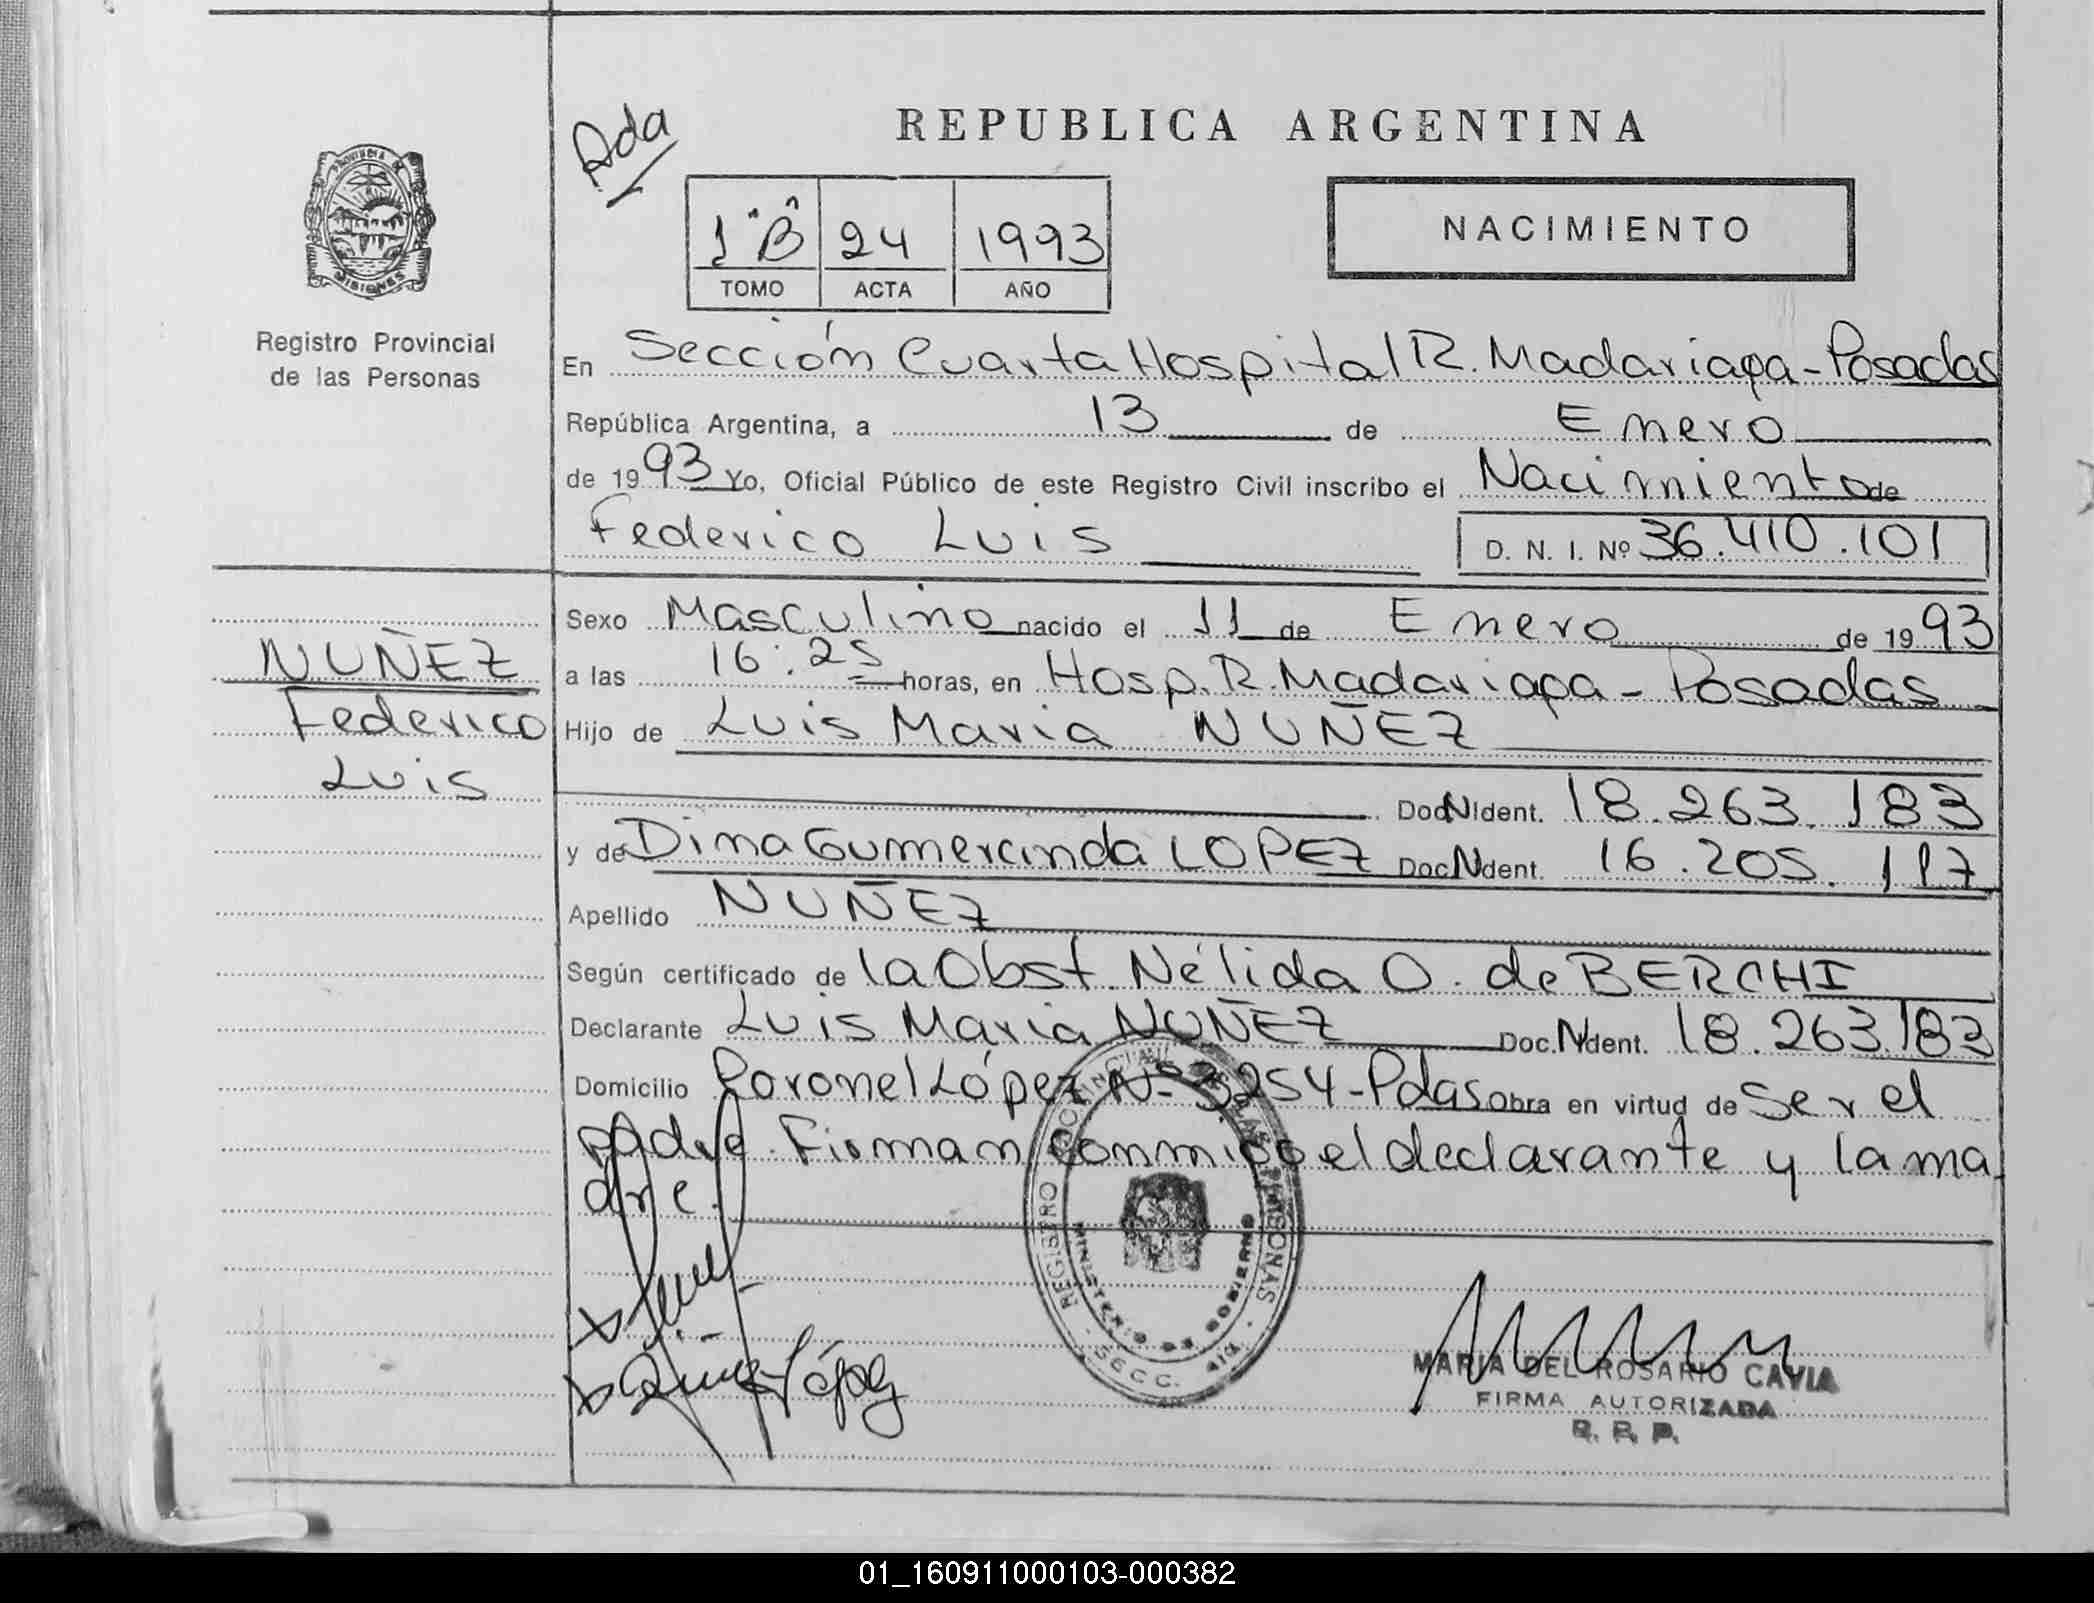 REPUBLICA ARGENTINA
Ada
1º "B"
24
1993
TOMO
ACTA
AÑO
NACIMIENTO
PROVINCIA DE
MISIONES
Registro Provincial
de las Personas
En Sección Cuarta Hospital R. Madariaga - Posadas
República Argentina, a 13 de Enero
de 1993 Yo, Oficial Público de este Registro Civil inscribo el Nacimiento de
Federico Luis
D. N. I. Nº 36.410.101
Sexo Masculino nacido el 11 de Enero de 1993
NUÑEZ
Federico
Luis
a las 16:25 horas, en Hosp. R. Madariaga - Posadas
Hijo de Luis Maria NUÑEZ
Doc. N Ident. 18.263.183
y de Dima Gumercinda LOPEZ Doc. N Ident. 16.205.117
Apellido NUÑEZ
Según certificado de la Obst. Nélida O. de BERCHI
Declarante Luis Maria NUÑEZ Doc. N Ident. 18.263.183
Domicilio Coronel López Nº 3254 - Pdas Obra en virtud de Ser el
padre. Firman conmigo el declarante y la ma
dre.
REGISTRO PROVINCIAL DE LAS PERSONAS
MINISTERIO DE GOBIERNO
SECC. 4ta.
López
MARIA DEL ROSARIO CAVIA
FIRMA AUTORIZADA
R. P. P.
01_160911000103-000382